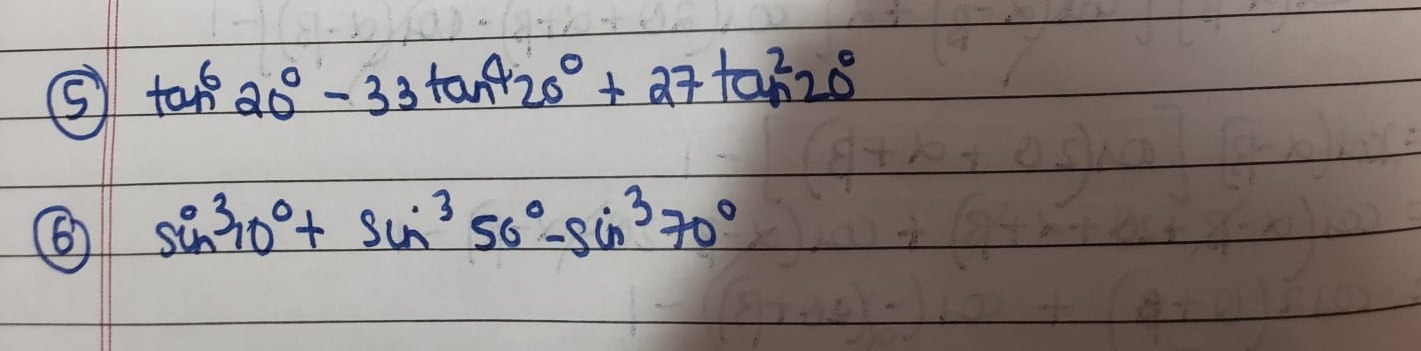 ⑤ tan⁶ 20° - 33 tan⁴ 20° + 27 tan² 20°
⑥ sin³ 10° + sin³ 50° - sin³ 70°